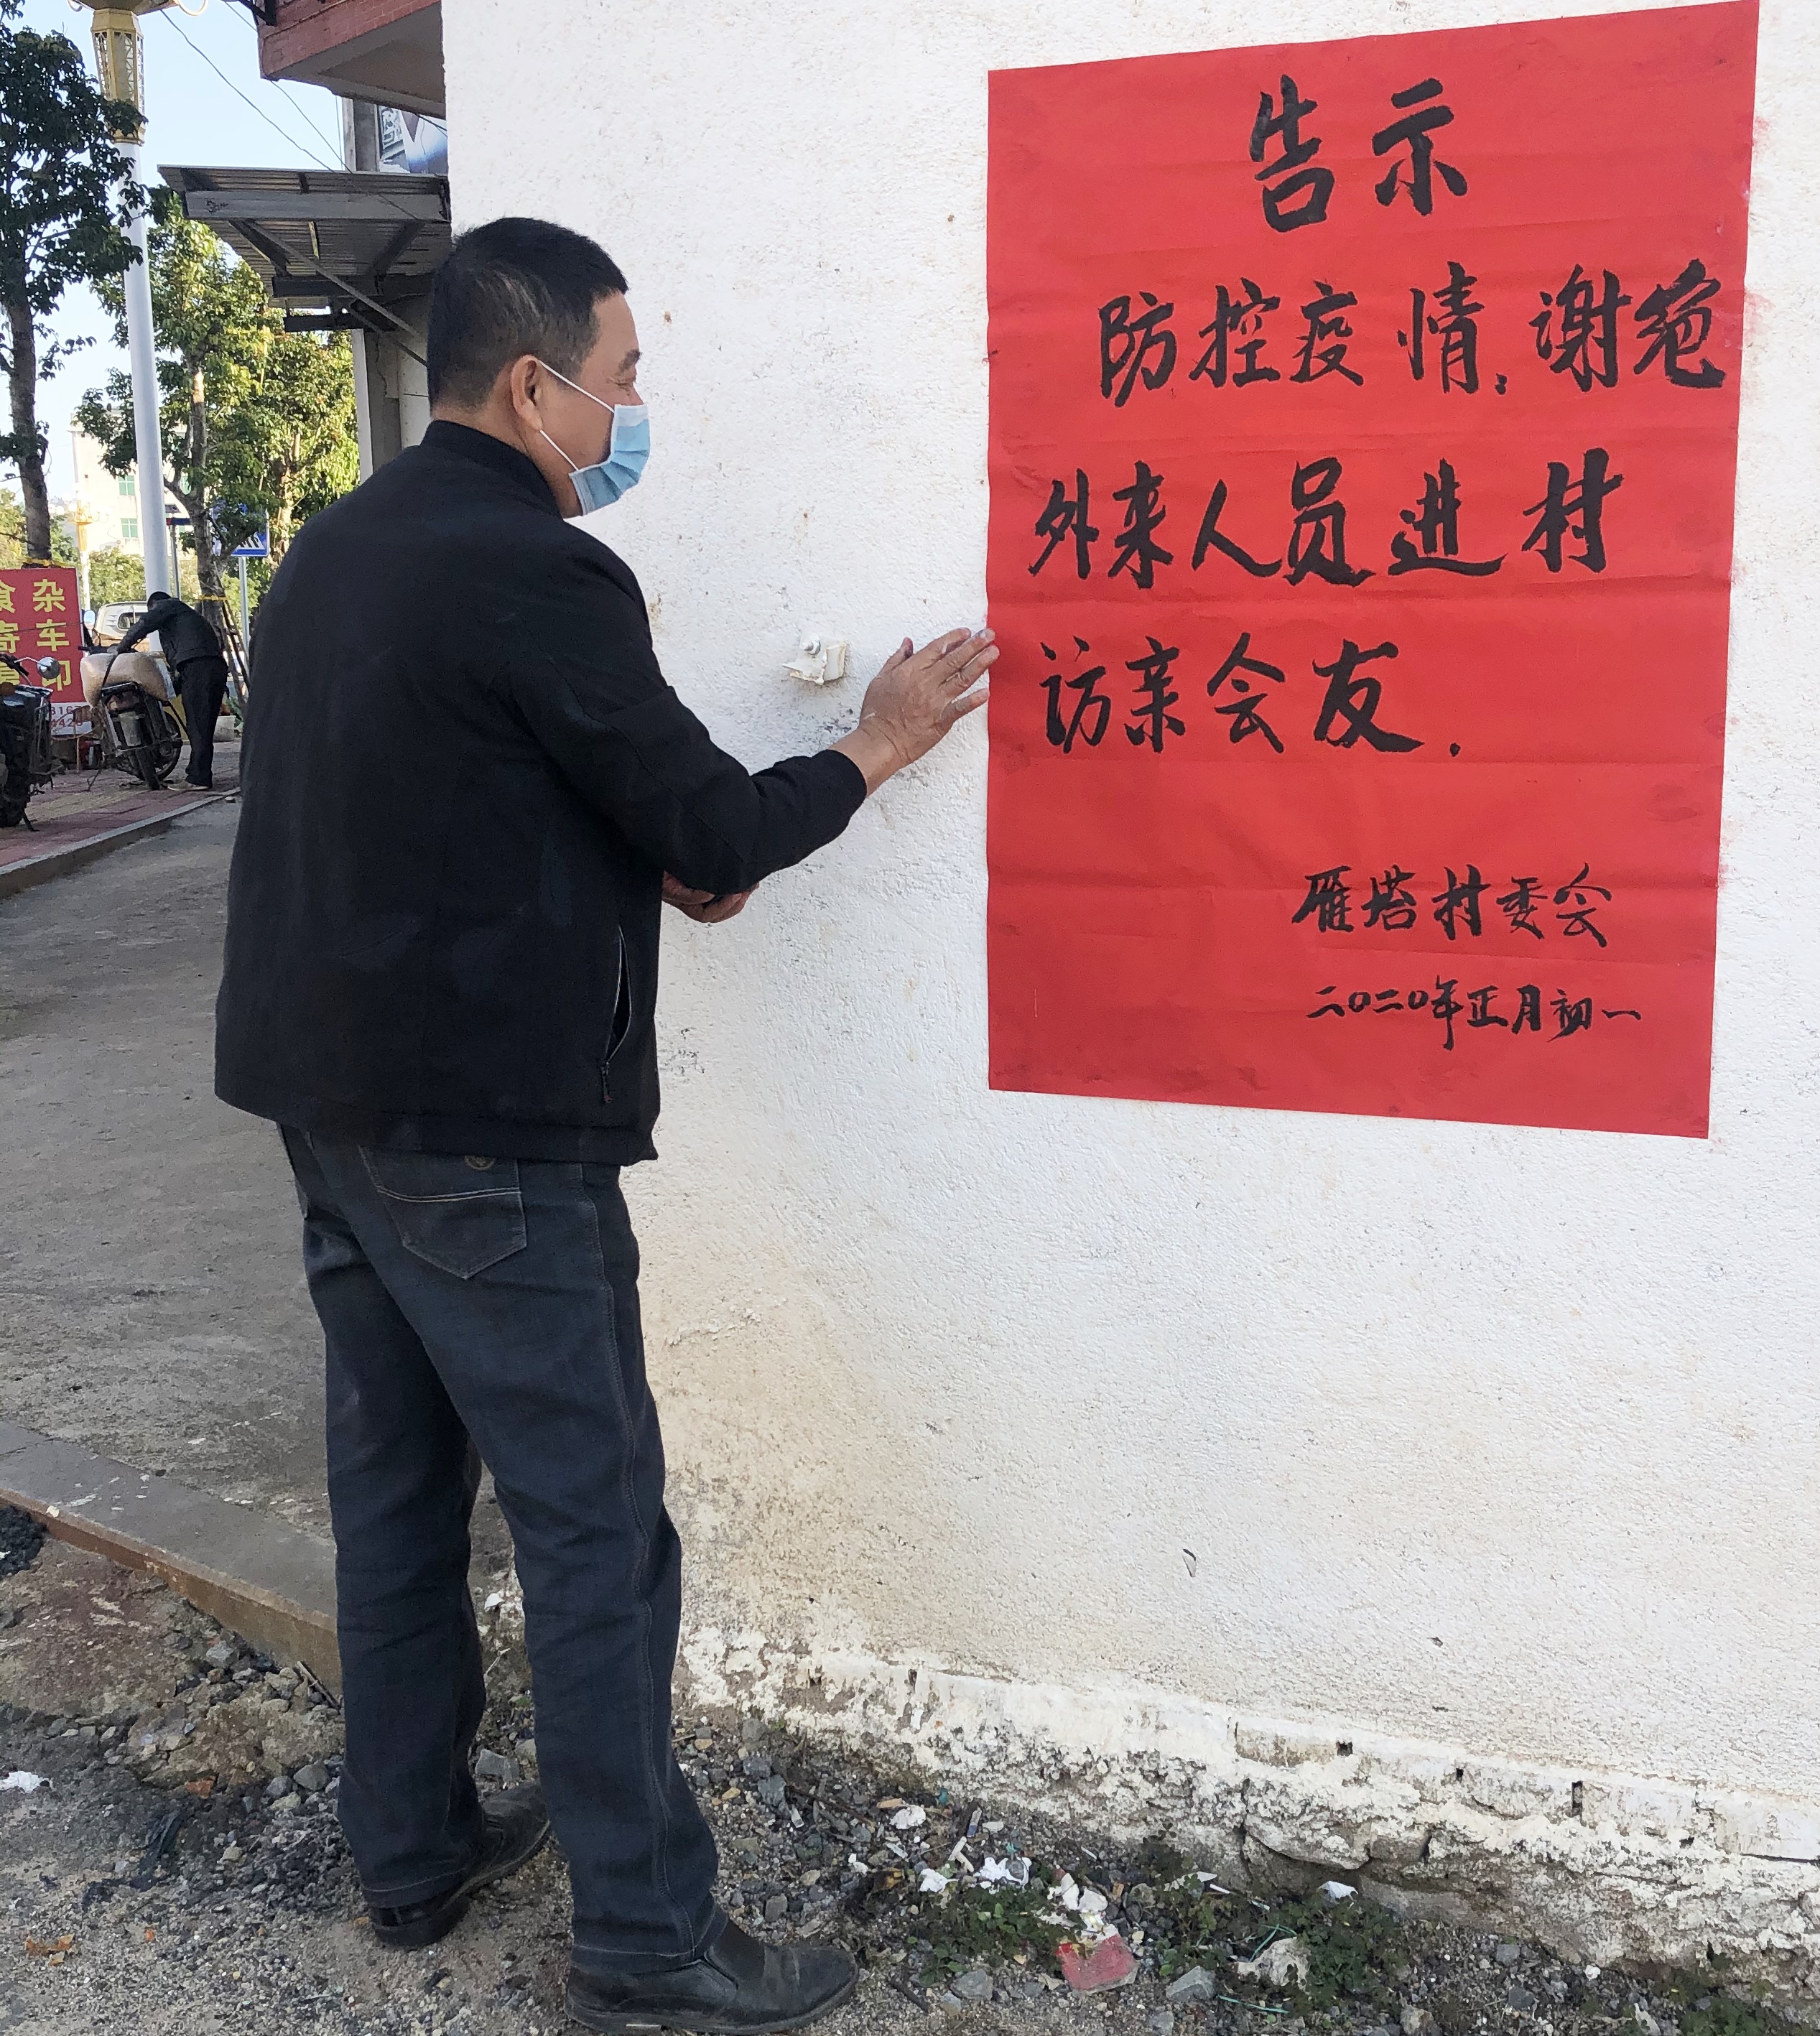 告示
防控疫情:谢绝
外来人员进村
访亲会友.
雁塔村委会
二0二0年正月初一
食杂
寄车
复印